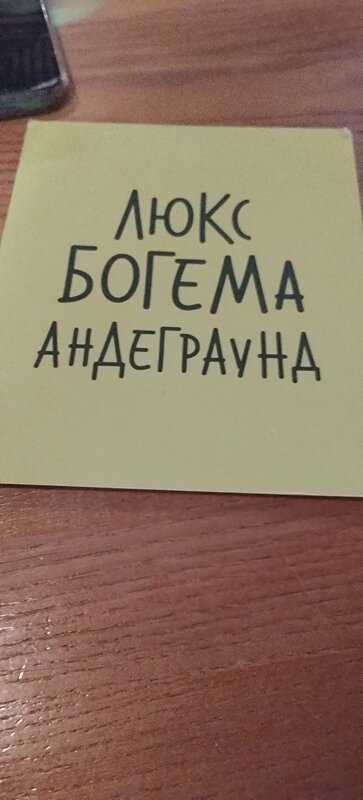 ЛЮКС
БОГЕМА
АНДЕГРАУНД